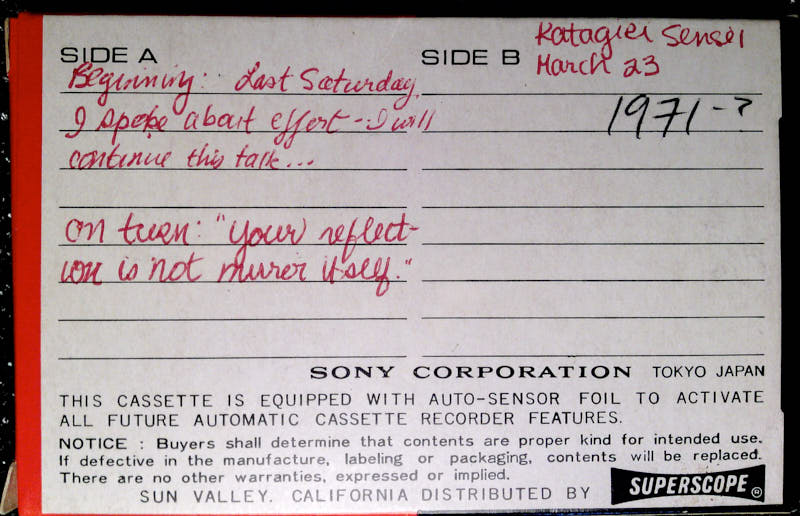 SIDE A
Beginning: Last Saturday,
I spoke about effort -- I will
continue this talk...
on turn: "your reflect-
ion is not mirrer itself."
SIDE B
Katagiri Sensei
March 23
1971-?
SONY CORPORATION TOKYO JAPAN
THIS CASSETTE IS EQUIPPED WITH AUTO-SENSOR FOIL TO ACTIVATE
ALL FUTURE AUTOMATIC CASSETTE RECORDER FEATURES.
NOTICE : Buyers shall determine that contents are proper kind for intended use.
If defective in the manufacture, labeling or packaging, contents will be replaced.
There are no other warranties, expressed or implied.
SUN VALLEY. CALIFORNIA DISTRIBUTED BY SUPERSCOPE®